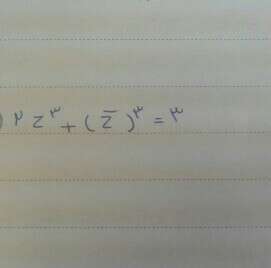 ) ۲ z^۳ + (z̄)^۳ = ۳